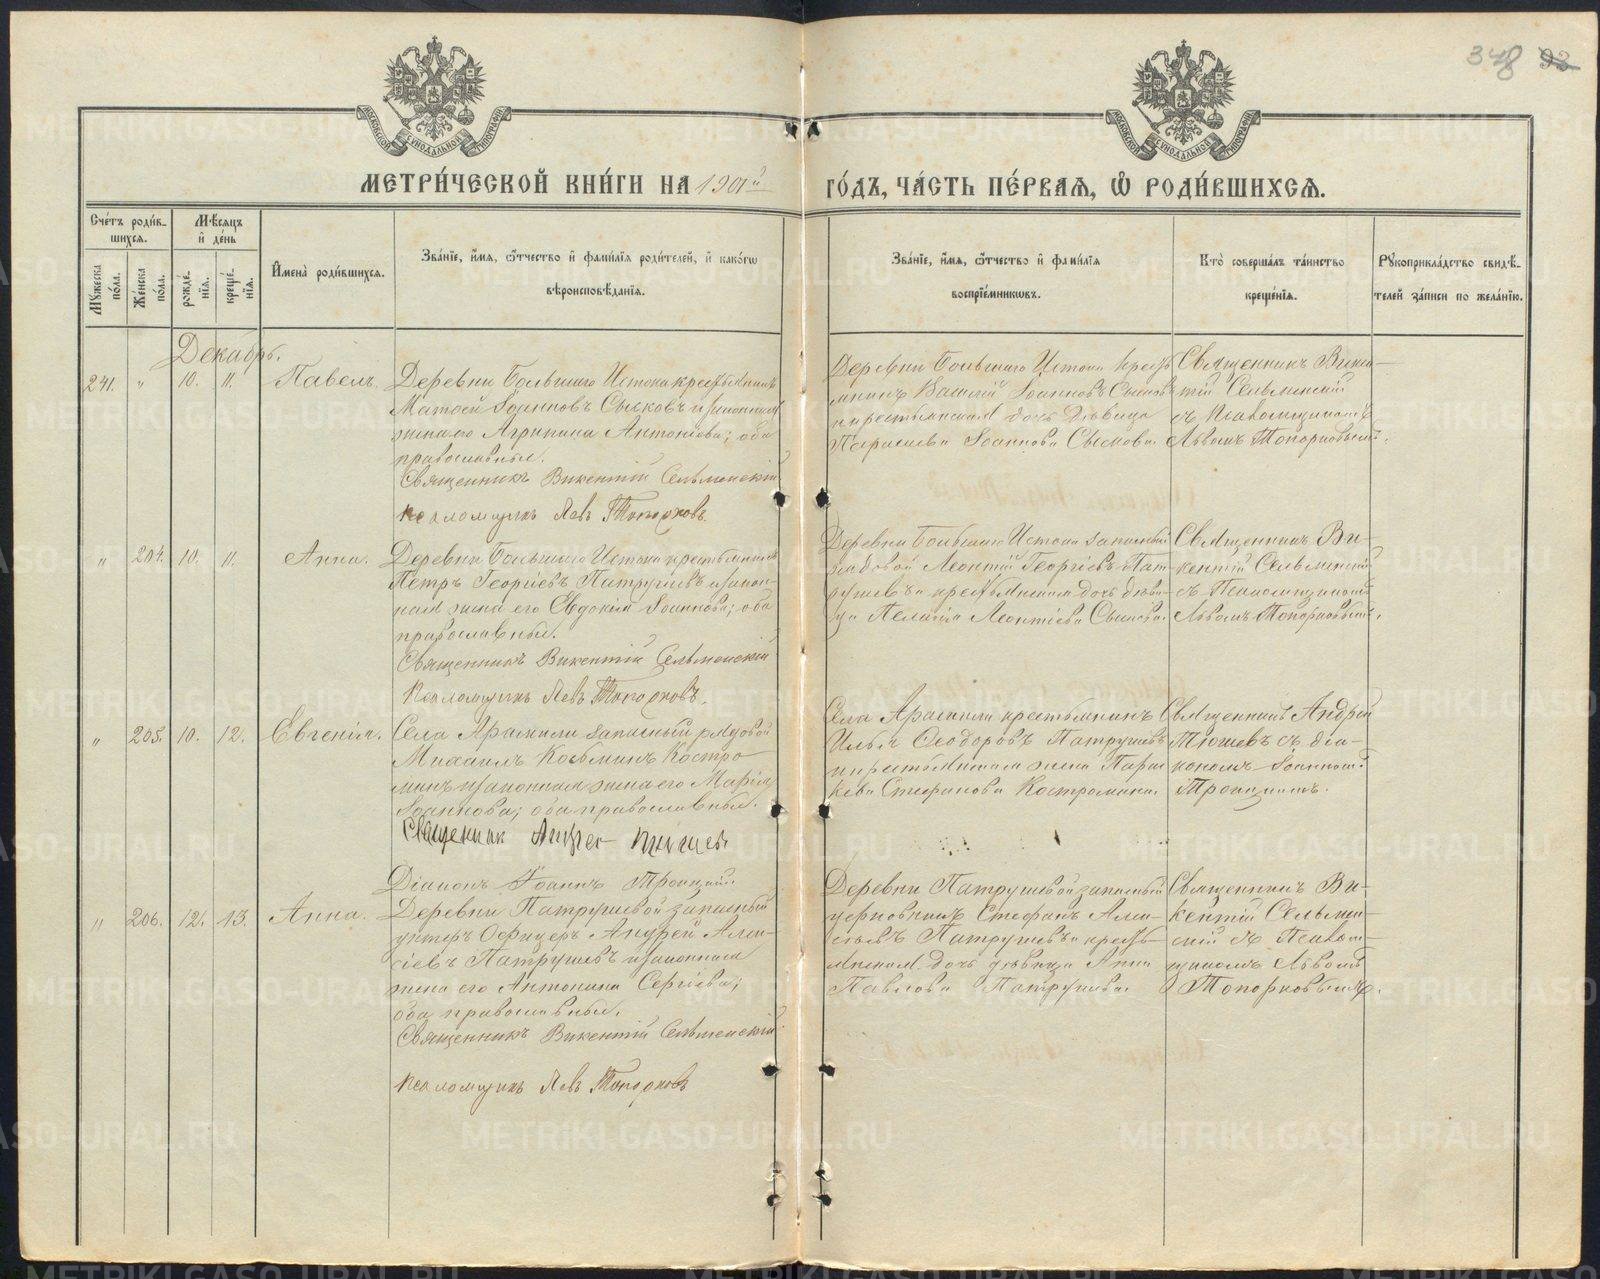 348 92
МОСКОВСКОЙ СѴНОДАЛЬНОЙ ТИПОГРАФІИ
МОСКОВСКОЙ СѴНОДАЛЬНОЙ ТИПОГРАФІИ
МЕТРИ́ЧЕСКОЙ КНИ́ГИ НА 1901й
ГО́ДЪ, ЧА́СТЬ ПЕ́РВАѦ, Ѽ РОДИ́ВШИХСѦ.
Сче́тъ роди́в-
шихсѧ.
Мꙋ́жеска по́ла.
Же́нска по́ла.
Мѣ́сѧцъ
и҆ де́нь
рожде́нїѧ.
креще́нїѧ.
И҆мена̀ роди́вшихсѧ.
Зва́нїе, и҆́мѧ, ѻ҆́тчество и҆ фами́лїѧ роди́телей, и҆ како́гѡ
вѣроисповѣ́данїѧ.
Зва́нїе, и҆́мѧ, ѻ҆́тчество и҆ фами́лїѧ
воспрїе́мникѡвъ.
Кто̀ соверша́лъ та́инство
креще́нїѧ.
Рꙋкоприкла́дство свидѣ́-
телей за́писи по жела́нїю.
Декабрь.
241. " 10. 11. Павелъ.
Деревни Большаго Истока крестьянинъ
Матѳей Іоанновъ Сысковъ и законная
жена его Агрипина Антонова; оба
православные.
Священникъ Викентій Сельменскій
Псаломщикъ Левъ Топорковъ.
Деревни Большаго Истока кресть-
янинъ Василій Іоанновъ Сысковъ
и крестьянская дочь дѣвица
Параскева Іоаннова Сыскова.
Священникъ Викен-
тій Сельменскій
съ Псаломщикомъ
Львомъ Топорковымъ.
" 204. 10. 11. Анна.
Деревни Большаго Истока крестьянинъ
Петръ Георгіевъ Патрушевъ и закон-
ная жена его Евдокія Іоаннова; оба
православные.
Священникъ Викентій Сельменскій
Псаломщикъ Левъ Топорковъ.
Деревни Большаго Истока запасный
рядовой Леонтій Георгіевъ Пат-
рушевъ и крестьянская дочь дѣви-
ца Пелагія Леонтіева Сыскова.
Священникъ Ви-
кентій Сельменскій
съ Псаломщикомъ
Львомъ Топорковымъ.
" 205. 10. 12. Евгенія.
Села Арамили запасный рядовой
Михаилъ Козьминъ Костро-
минъ и законная жена его Марія
Іоаннова; оба православные.
Священник Андрей Тюшев
Діаконъ Іоаннъ Троицкій
Села Арамили крестьянинъ
Илья Ѳеодоровъ Патрушевъ
и крестьянская жена Парас-
кева Стефанова Костромина.
Священникъ Андрей
Тюшевъ съ діа-
кономъ Іоанномъ
Троицкимъ.
" 206. 12. 13. Анна.
Деревни Патрушевой запасный
унтеръ Офицеръ Андрей Алек-
сіевъ Патрушевъ и законная
жена его Антонина Сергіева;
оба православные.
Священникъ Викентій Сельменскій
Псаломщикъ Левъ Топорковъ
Деревни Патрушевой запасный
церковникъ Стефанъ Алек-
сіевъ Патрушевъ и кресть-
янская дочь дѣвица Анна
Павлова Патрушева.
Священникъ Ви-
кентій Сельмен-
скій съ Псалом-
щикомъ Львомъ
Топорковымъ.
METRIKI.GASO-URAL.RU